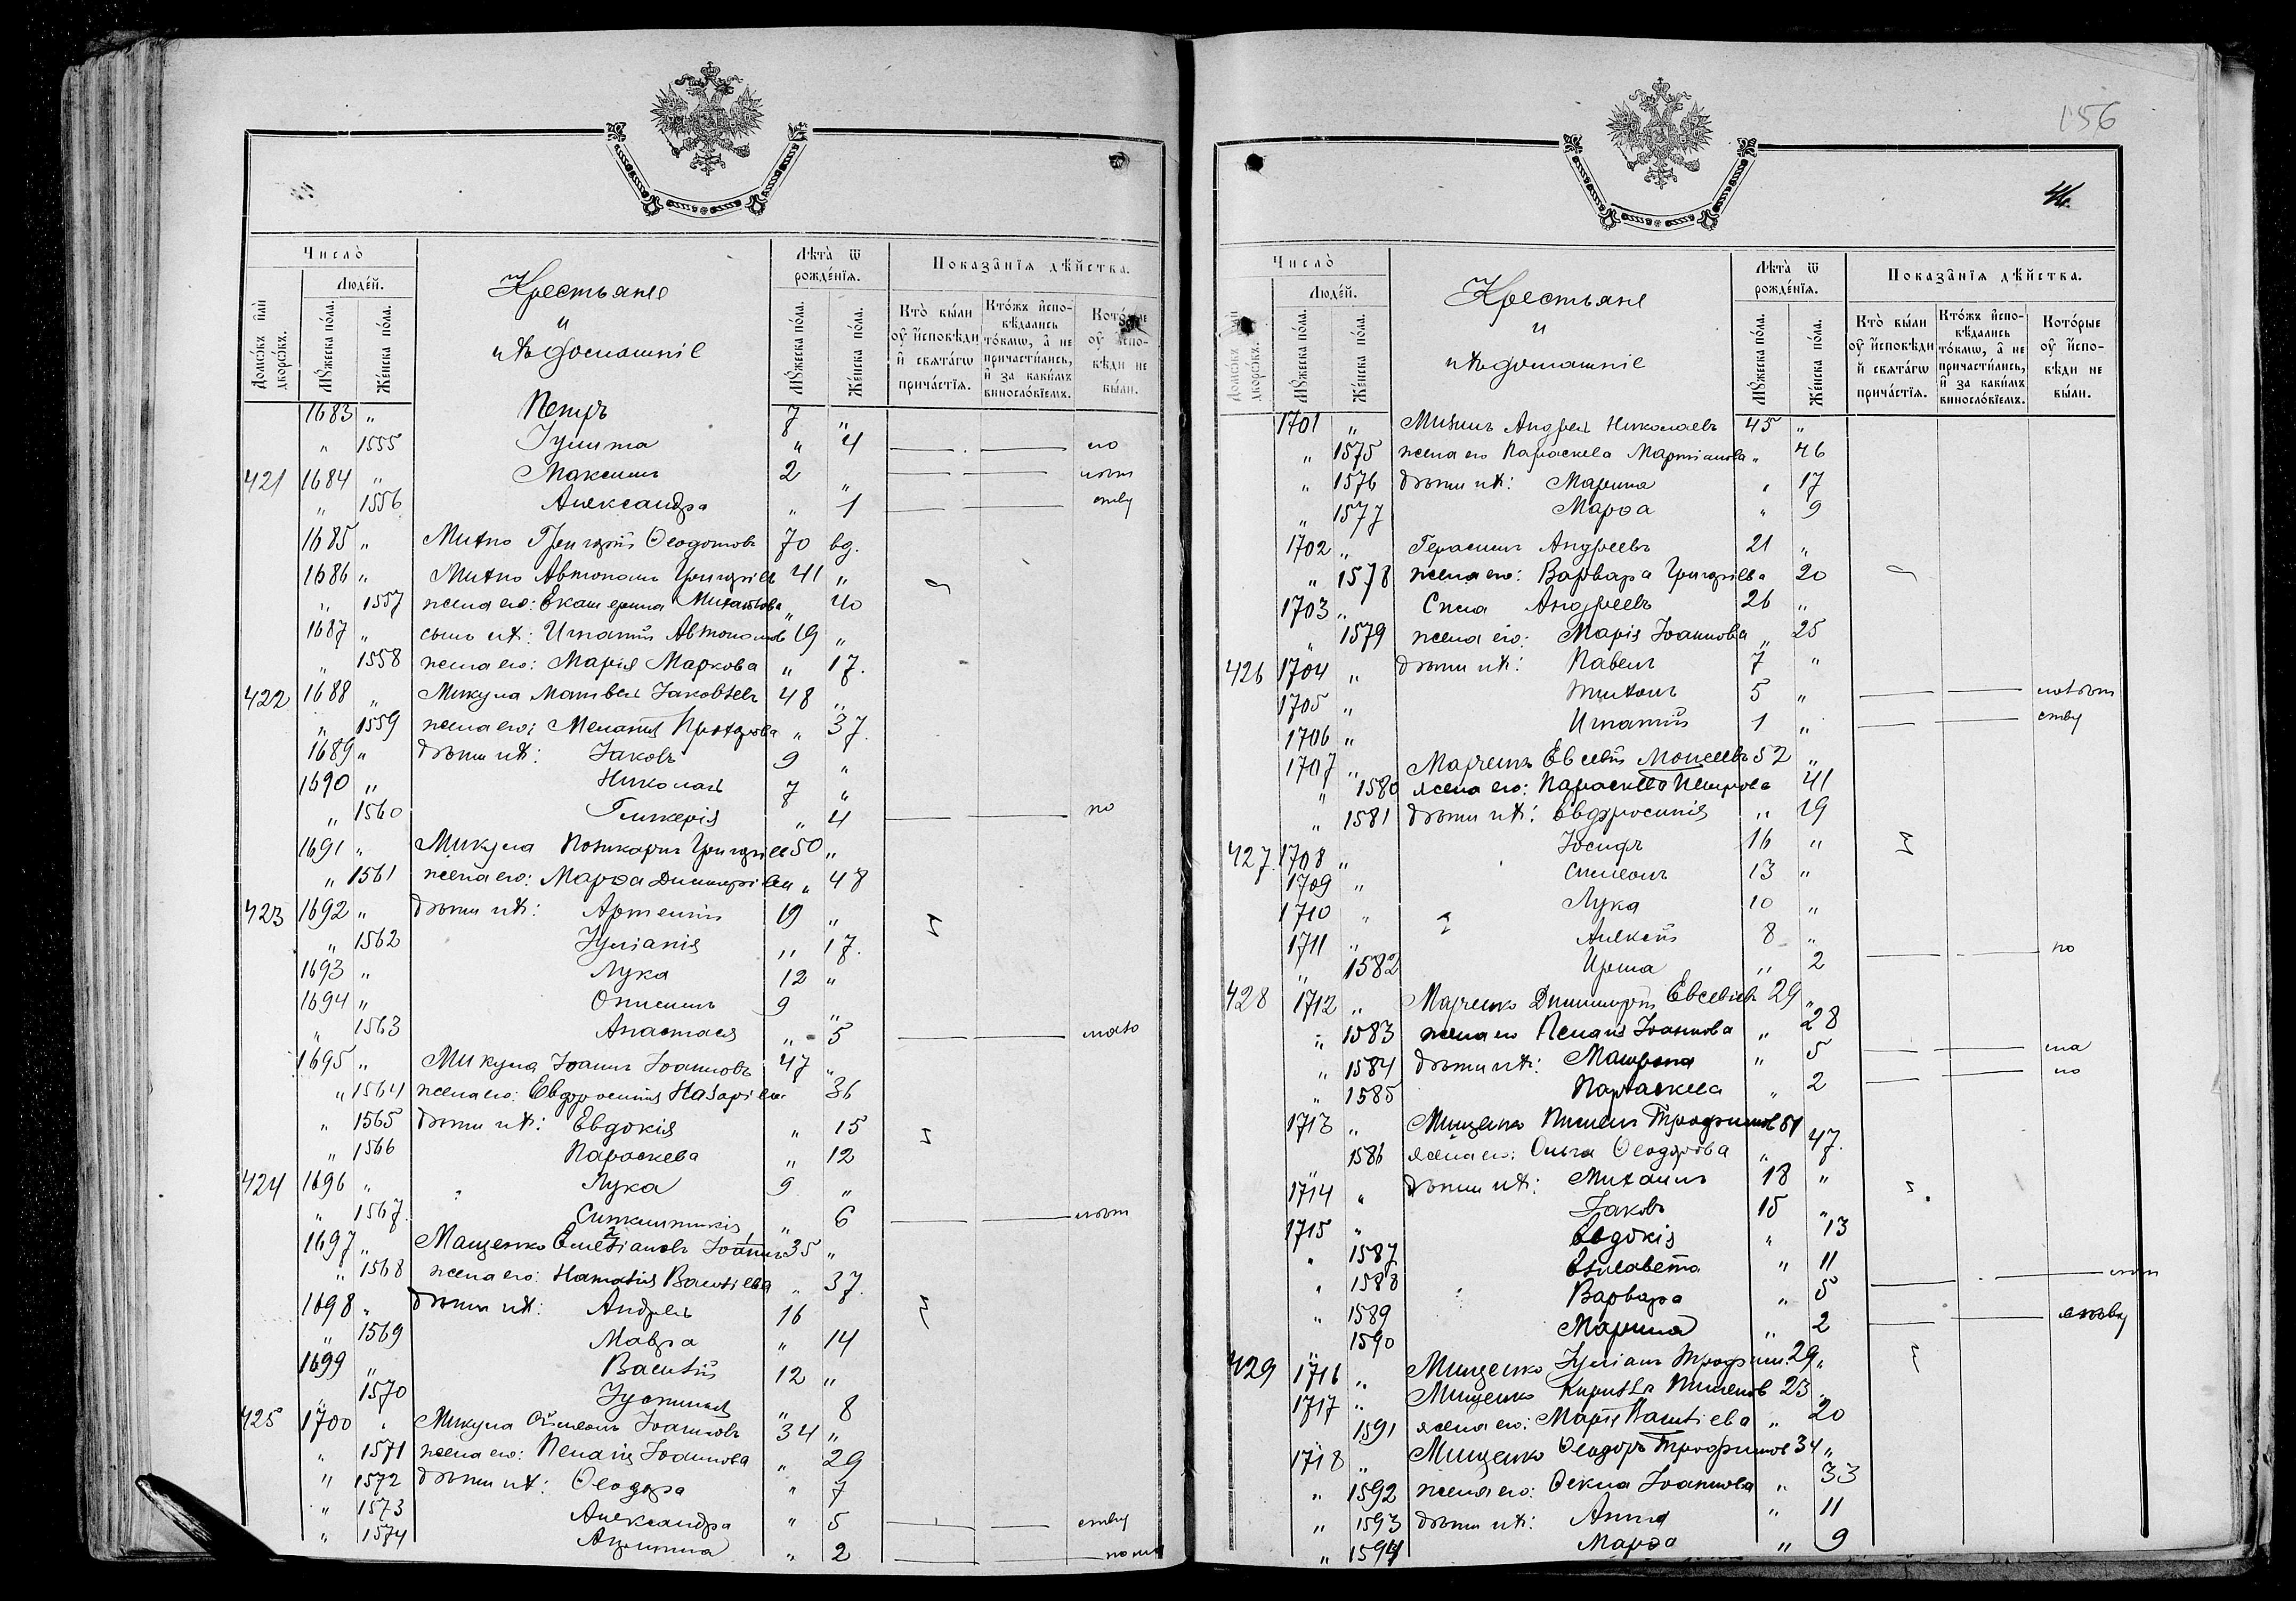 Число̀
Домо́въ и҆лѝ дворѡ́въ.
Люде́й.
Мꙋ́жеска по́ла.
Же́нска по́ла.
Крестьяне
и
ихъ домашніе
Лѣта̀ ѿ рожде́нїѧ.
Мꙋ́жеска по́ла.
Же́нска по́ла.
Показа̑нїѧ дѣ́йства.
Кто̀ бы́ли оу҆ и҆сповѣ́ди и҆ свѧта́гѡ прича́стїѧ.
Кто́жъ и҆спо-вѣ́дались то́кмѡ, а҆ не причасти́лись, и҆ за каки́мъ виносло́вїемъ.
Кото́рые оу҆ и҆спо-вѣ́ди не бы́ли.
1683 " Петръ 7 "
" 1555 Іулитта " 4 по
421 1684 " Максимъ 2 " мало
" 1556 Александра " 1 лѣтству
1685 " Михно Григорій Ѳеодотовъ 70 вд.
1686 " Михно Автономъ Григоріев 41 "
" 1557 жена его: Екатерина Михайлова " 40
1687 " сынъ ихъ: Игнатій Автономов 19 "
" 1558 жена его: Марія Маркова " 17.
422 1688 " Микула Матвей Іаковлевъ 48 "
" 1559 жена его: Меланія Прохорова " 37
1689 " дѣти ихъ: Іаковъ 9 "
1690 " Николай 7 "
" 1560 Гликерія " 4 по
1691 " Микула Поликарпъ Григоріев 50 "
" 1561 жена его: Марѳа Димитріева " 48
423 1692 " дѣти ихъ: Артемій 19 "
" 1562 Іуліанія " 17.
1693 " Лука 12 "
1694 " Онисимъ 9 "
" 1563 Анастасія " 5 мало
1695 " Микула Іоаннъ Іоанновъ 47 "
" 1564 жена его: Евфросинія Назаріева 36
" 1565 дѣти ихъ: Евдокія " 15
" 1566 Параскева " 12
424 1696 " Лука 9 "
" 1567 Синклитикія " 6
1697 " Мащенко Іоаннъ 35 "
" 1568 жена его: Наталія Василіева " 37.
1698 " дѣти ихъ: Андрей 16
" 1569 Мавра " 14
1699 " Василій 12 "
" 1570 Іустинія " 8
425 1700 " Микула Симеонъ Іоанновъ 34 "
" 1571 жена его: Пелагія Іоаннова " 29
" 1572 дѣти ихъ: Ѳеодора " 7
" 1573 Александра " 5
" 1574 Акилина " 2
156
Число̀
Домо́въ и҆лѝ дворѡ́въ.
Люде́й.
Мꙋ́жеска по́ла.
Же́нска по́ла.
Крестьяне
и
ихъ домашніе
Лѣта̀ ѿ рожде́нїѧ.
Мꙋ́жеска по́ла.
Же́нска по́ла.
Показа̑нїѧ дѣ́йства.
Кто̀ бы́ли оу҆ и҆сповѣ́ди и҆ свѧта́гѡ прича́стїѧ.
Кто́жъ и҆спо-вѣ́дались то́кмѡ, а҆ не причасти́лись, и҆ за каки́мъ виносло́вїемъ.
Кото́рые оу҆ и҆спо-вѣ́ди не бы́ли.
1701 " Андрей Николаевъ 45 "
" 1575 жена его Параскева Мартіанова " 46
" 1576 дѣти ихъ: Марина " 17
" 1577 Марѳа " 9
1702 " Герасимъ Андреевъ 21 "
" 1578 жена его: Варвара Григоріева 20
1703 " Сила Андреевъ 26 "
" 1579 жена его: Марія Іоаннова " 25
426 1704 " дѣти ихъ: Павелъ 7 "
1705 " Тихонъ 5 " малолѣт
1706 " Игнатій 1 " ству
1707 " Марченко Евсевій Моисеевъ 52 "
" 1580 жена его: Параскева Петрова 41
" 1581 дѣти ихъ: Евфросинія " 19
427 1708 " Іосифъ 16 "
1709 " Симеонъ 13 "
1710 " Лука 10 "
1711 " Алексій 8 "
" 1582 Ирина " 2 по
428 1712 " Марченко Димитрій Евсевіев 29 "
" 1583 жена его Пелагія Іоаннова " 28
" 1584 дѣти ихъ: Матрона " 5
" 1585 Параскева " 2
1713 " Мищенко Пименъ Трофимов 51
1586 жена его: Ольга Ѳеодорова " 47.
1714 " дѣти ихъ: Михаилъ 18 "
1715 " Іаковъ 15 "
" 1587 Евдокія " 13
" 1588 Елисавета " 11
" 1589 Варвара " 5
1590 Марина " 2
429 1716 " Мищенко Іуліанъ Трофим. 29 "
1717 " Мищенко Кириллъ Пименов 23 "
1591 жена его: Марія " 20
1718 " Мищенко Ѳеодоръ Трофимов 34 "
" 1592 жена его: Ѳекла Іоаннова " 33
" 1593 дѣти ихъ: Анна " 11
" 1594 Марѳа " 9